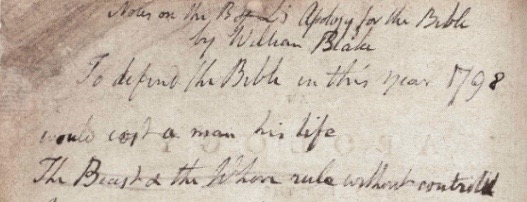 Notes on the B's Apology for the Bible
by William Blake
To defend the Bible in this year 1798
would cost a man his life
The Beast & the Whore rule without control